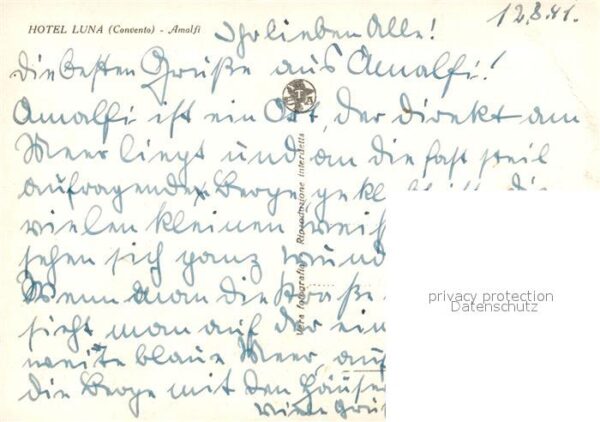 HOTEL LUNA (Convento) - Amalfi
12.8.41.
Ihr lieben Alle!
die besten Grüße aus Amalfi!
Amalfi ist ein Ort, der direkt am
Meer liegt und an die fast steil
aufragenden Berge die
vielen kleinen
sehen sich ganz
Wenn man die Straße
sieht man auf der
weite blaue Meer, auf
die Berge mit den
viele
Vera fotografia - Riproduzione interdetta
privacy protection
Datenschutz